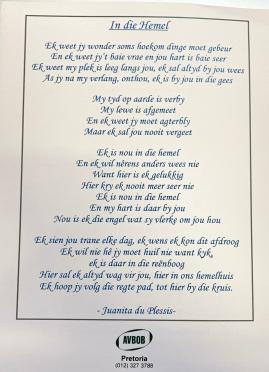 In die Hemel
Ek weet jy wonder soms hoekom dinge moet gebeur
En ek weet jy't baie vrae en jou hart is baie seer
Ek weet my plek is leeg langs jou, ek sal altyd by jou wees
As jy na my verlang, onthou, ek is by jou in die gees
My tyd op aarde is verby
My lewe is afgemeet
En ek weet jy moet agterbly
Maar ek sal jou nooit vergeet
Ek is nou in die hemel
En ek wil nêrens anders wees nie
Want hier is ek gelukkig
Hier kry ek nooit meer seer nie
Ek is nou in die hemel
En my hart is daar by jou
Nou is ek die engel wat sy vlerke om jou hou
Ek sien jou trane elke dag, ek wens ek kon dit afdroog
Ek wil nie hê jy moet huil nie want kyk,
ek is daar in die reënboog
Hier sal ek altyd wag vir jou, hier in ons hemelhuis
Ek hoop jy volg die regte pad, tot hier by die kruis.
- Juanita du Plessis-
AVBOB
Pretoria
(012) 327 3788